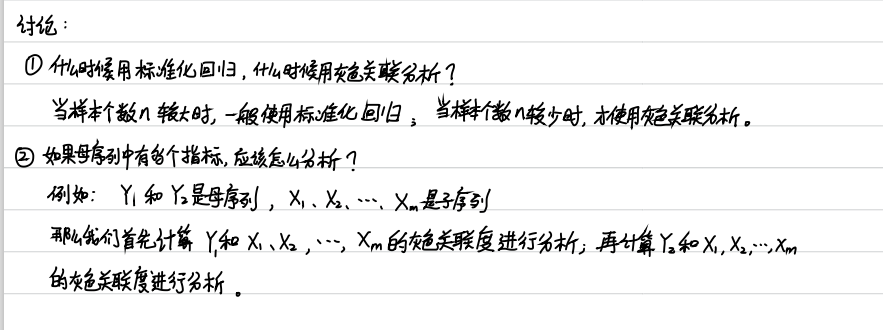 讨论：
① 什么时候用标准化回归，什么时候用灰色关联分析？
当样本个数n较大时，一般使用标准化回归；当样本个数n较少时，才使用灰色关联分析。
② 如果母序列中有多个指标，应该怎么分析？
例如：Y₁和Y₂是母序列，X₁、X₂、…、Xₘ是子序列
那么我们首先计算Y₁和X₁、X₂，…，Xₘ的灰色关联度进行分析；再计算Y₂和X₁，X₂，…，Xₘ
的灰色关联度进行分析。